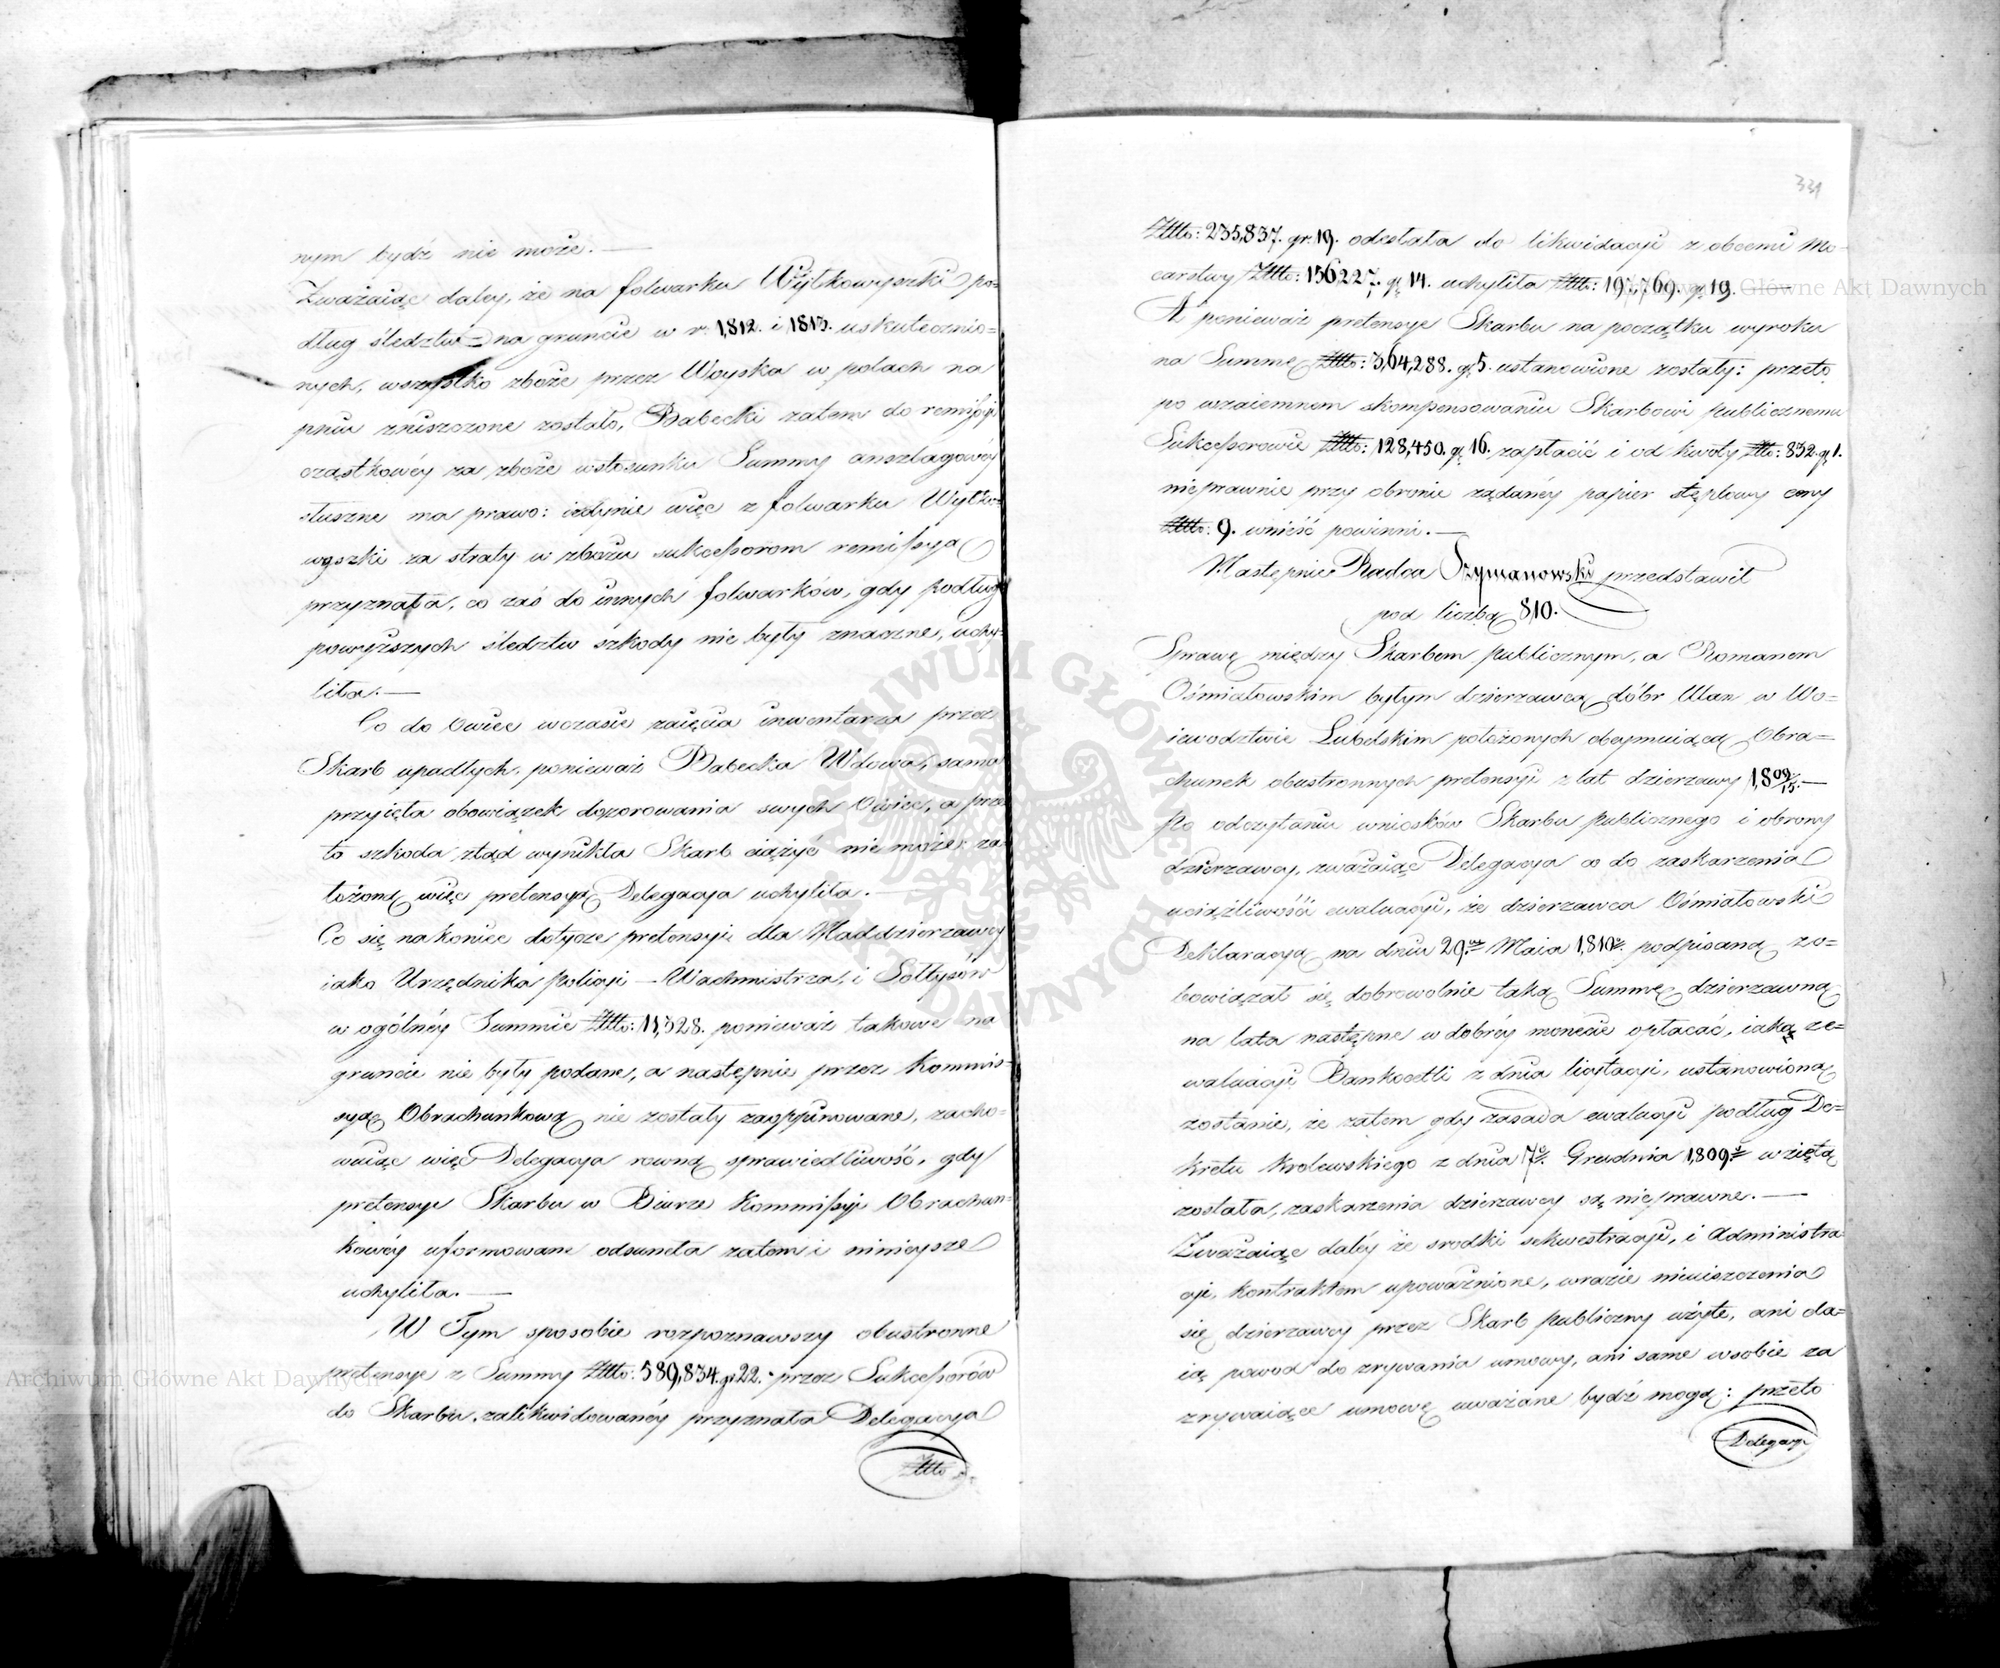 nym bydź nie może. —
Zważaiąc daley, że na folwarku Wyłkowyszki po=
dług śledztw na gruncie w r. 1812. i 1813. uskutecznio=
nych, wszystko zboże przez Woyska w polach na
pniu zniszczone zostało, Babecki zatem do remissyi
cząstkowéy za zboże w stosunku Summy anszlagowéy
słuszne ma prawo: iedynie więc z folwarku Wyłko=
wyszki za straty w zbożu sukcessorom remissya
przyznała, co zaś do innych folwarków, gdy podług
powyższych śledztw szkody nie były znaczne, uchy=
liła. —
Co do Owiec w czasie zaięcia inwentarza przez
Skarb upadłych, ponieważ Babecka Wdowa, sama
przyięła obowiązek dozorowania swych Owiec, a prze
to szkoda ztąd wynikła Skarb ciążyć nie może, za=
łożoną więc pretensyą Delegacya uchyliła. —
Co się nakoniec dotycze pretensyi dla Naddzierzawcy
iako Urzędnika policyi — Wachmistrza, i Sołtysów
w ogólnéy Summie Złtto: 11,328. ponieważ takowe na
gruncie nie były podane, a następnie przez Kommis=
syą Obrachunkową nie zostały zaopiniowane, zacho=
waiąc więc Delegacya równą sprawiedliwość, gdy
pretensye Skarbu w Biurze Kommissyi Obrachun=
kowéy uformowane odsuneła zatem i ninieysze
uchyliła. —
W Tym sposobie rozpoznawszy obustronne
pretensye z Summy Złtto: 589,834. gr 22. przez Sukcessorów
do Skarbu zalikwidowanéy przyznała Delegacya
Złtto
331
Złtto: 235,837. gr. 19. odesłała do likwidacyi z obcemi Mo=
carstwy Złtto: 156,227. gr 14. uchyliła Złtto: 197,769. gr 19. —
A ponieważ pretensye Skarbu na początku wyroku
na Summę Złtto: 364,288. gr 5. ustanowione zostały: przeto
po wzaiemnem skompensowaniu Skarbowi publicznemu
Sukcessorowie Złtto: 128,450. gr 16. zapłacić i od kwoty Złtto: 832. gr 1.
nieprawnie przy obronie żądanéy papier stęplowy ceny
Złtto: 9. wnieść powinni. —
Następnie Radca Szymanowski przedstawił
pod liczbą 810.
Sprawę między Skarbem publicznym, a Romanem
Ośmiałowskim byłym dzierzawcą dóbr Ulan w Wo=
iewodztwie Lubelskim położonych obeymuiącą Obra=
chunek obustronnych pretensyi z lat dzierzawy 1809/15. —
Po odczytaniu wniosków Skarbu publicznego i obrony
dzierzawcy, zważaiąc Delegacya co do zaskarzenia
uciążliwości ewaluacyi, że dzierzawca Ośmiałowski
Deklaracyą na dniu 29. Maia 1810. podpisaną zo=
bowiązał się dobrowolnie taką Summę dzierzawną
na lata następne w dobréy monecie opłacać, iaką ze=
waluacyi Bankocetli z dnia licytacyi, ustanowioną
zostanie, że zatem gdy zasada ewaluacyi podług De=
kretu Krolewskiego z dnia 7. Grudnia 1809. wzięta
została, zaskarzenia dzierzawcy są nieprawne. —
Zważaiąc daléy że srodki sekwestracyi, i Administra=
cyi, kontraktem upoważnione, w razie nieuiszczenia
się dzierzawcy przez Skarb publiczny użyte, ani da=
ią powod do zrywania umowy, ani same w sobie za
zrywaiące umowę uważane bydź mogą: przeto
Delegacya
Archiwum Główne Akt Dawnych